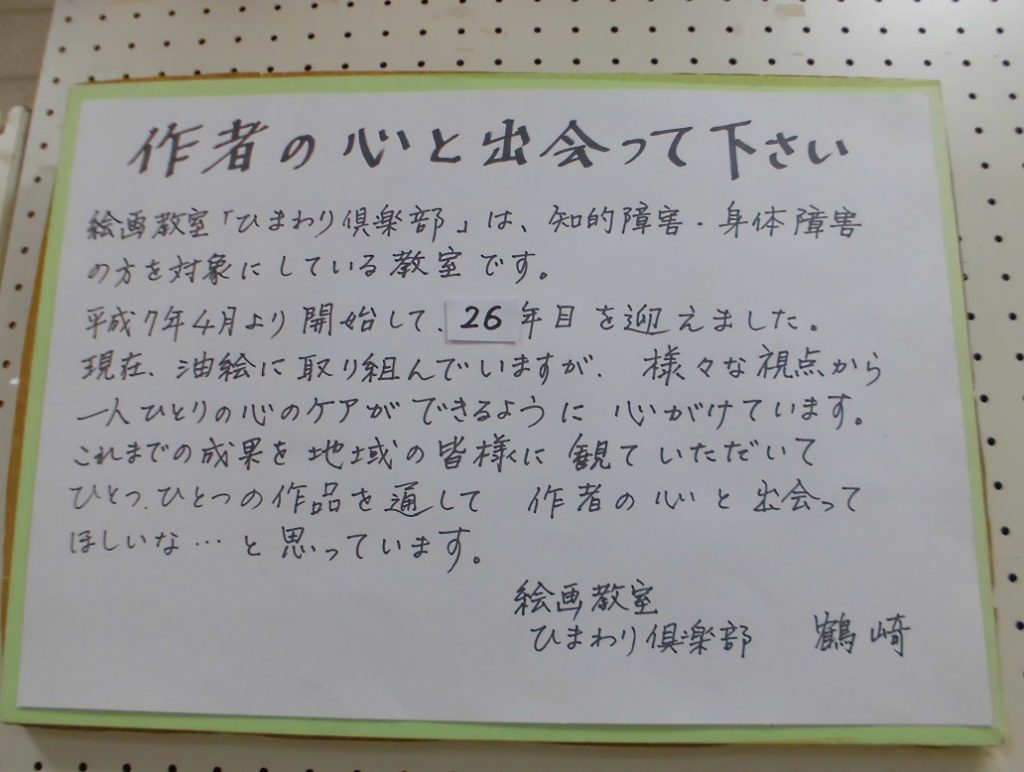 作者の心と出会って下さい
絵画教室「ひまわり倶楽部」は、知的障害・身体障害
の方を対象にしている教室です。
平成7年4月より開始して、26年目を迎えました。
現在、油絵に取り組んでいますが、様々な視点から
一人ひとりの心のケアができるように心がけています。
これまでの成果を地域の皆様に観ていただいて
ひとつ、ひとつの作品を通して 作者の心と出会って
ほしいな…と思っています。
絵画教室
ひまわり倶楽部 鶴崎